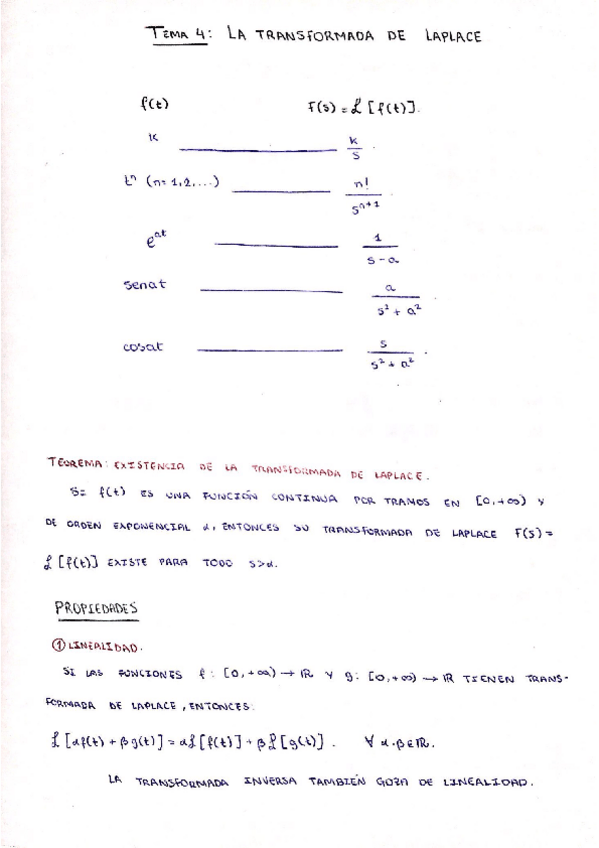 TEMA 4: LA TRANSFORMADA DE LAPLACE
f(t) F(s) = ℒ[f(t)].
k k/s
tⁿ (n=1,2,...) n!/sⁿ⁺¹
eᵃᵗ 1/(s-a)
senat a/(s²+a²)
cosat s/(s²+a²)
TEOREMA: EXISTENCIA DE LA TRANSFORMADA DE LAPLACE.
SI f(t) ES UNA FUNCIÓN CONTINUA POR TRAMOS EN [0,+∞) Y
DE ORDEN EXPONENCIAL α, ENTONCES SU TRANSFORMADA DE LAPLACE F(s)=
ℒ[f(t)] EXISTE PARA TODO s>α.
PROPIEDADES
① LINEALIDAD.
SI LAS FUNCIONES f: [0,+∞) → ℝ Y g: [0,+∞) → ℝ TIENEN TRANS-
FORMADA DE LAPLACE, ENTONCES:
ℒ[αf(t) + βg(t)] = αℒ[f(t)] + βℒ[g(t)]. ∀ α·β∈ℝ.
LA TRANSFORMADA INVERSA TAMBIÉN GOZA DE LINEALIDAD.